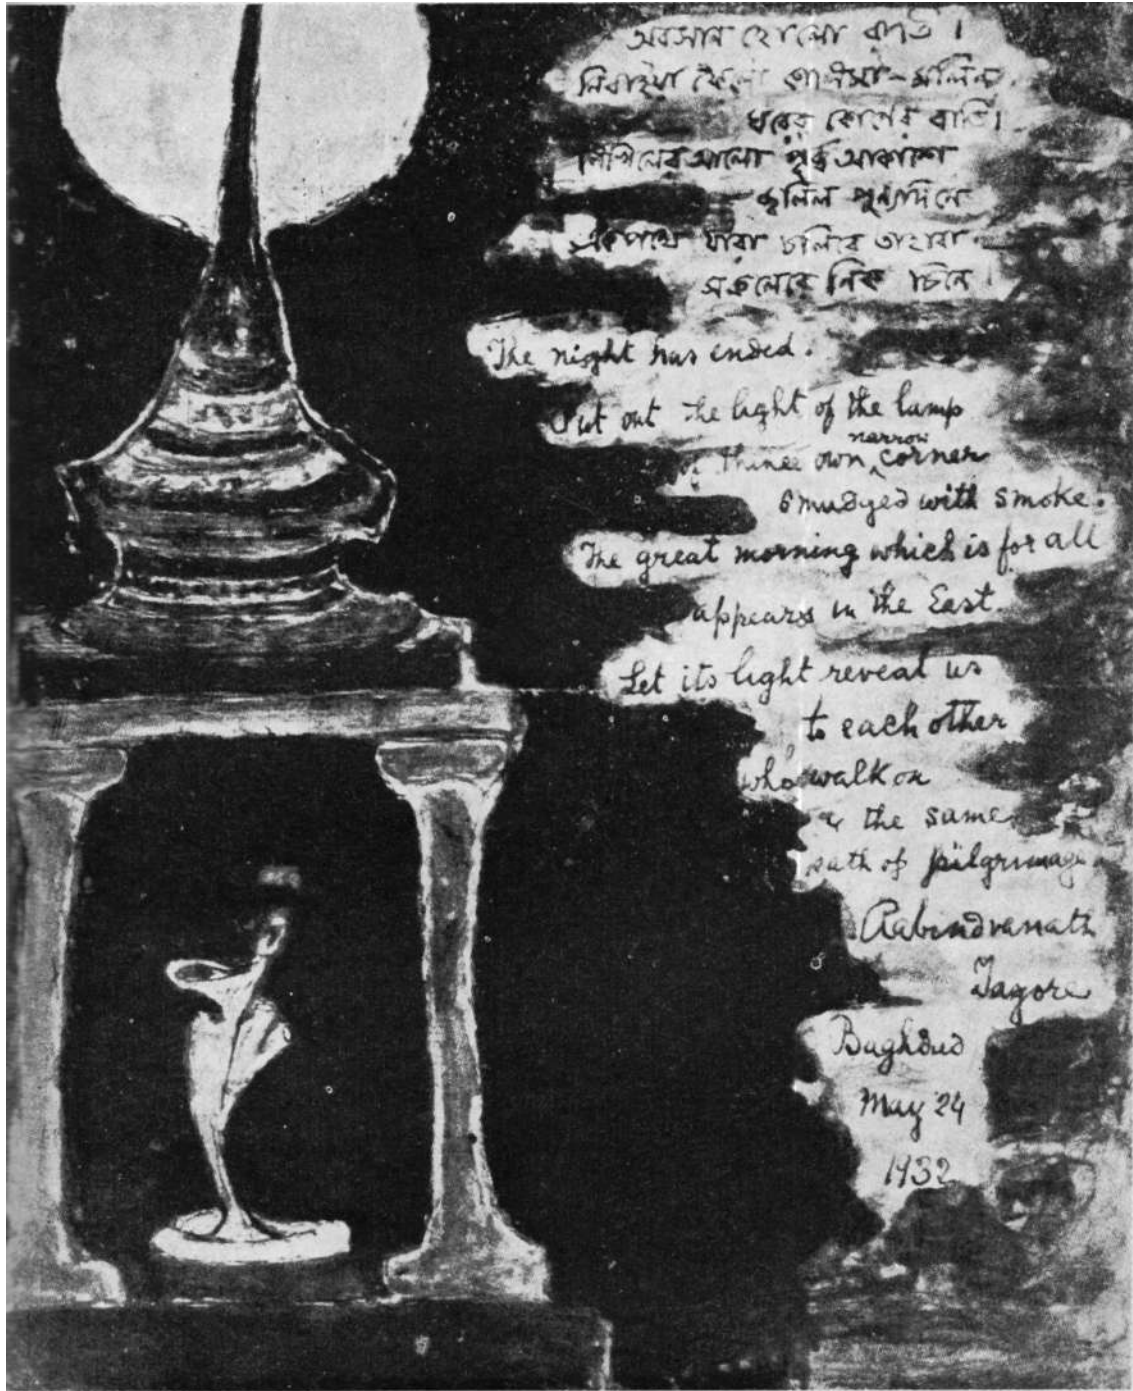 অবসান হোলো রাতি।
নিবাইয়া ফেলো কালিমা-মলিন
ঘরের কোণের বাতি।
নিখিলের আলো পূর্ব্ব আকাশে
জ্বলিল পুণ্যদিনে
একপথে যারা চলিবে তাহারা
সকলেরে নিক্ চিনে।
The night has ended.
Put out the light of the lamp
of thine own narrow corner
smudged with smoke.
The great morning which is for all
appears in the East.
Let its light reveal us
to each other
who walk on
the same
path of pilgrimage
Rabindranath
Tagore
Baghdad
May 24
1932